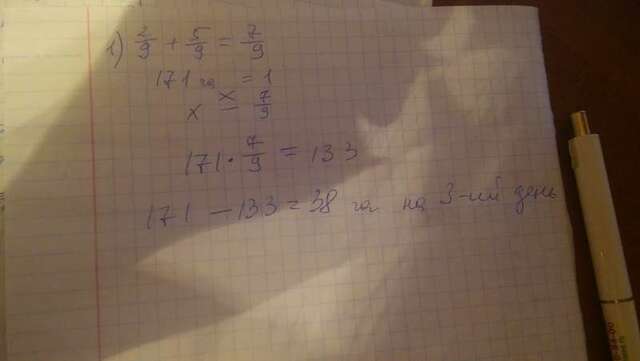 1) 2/9 + 5/9 = 7/9
171 га = 1
x = 7/9
171 · 7/9 = 133
171 - 133 = 38 га на 3-ий день